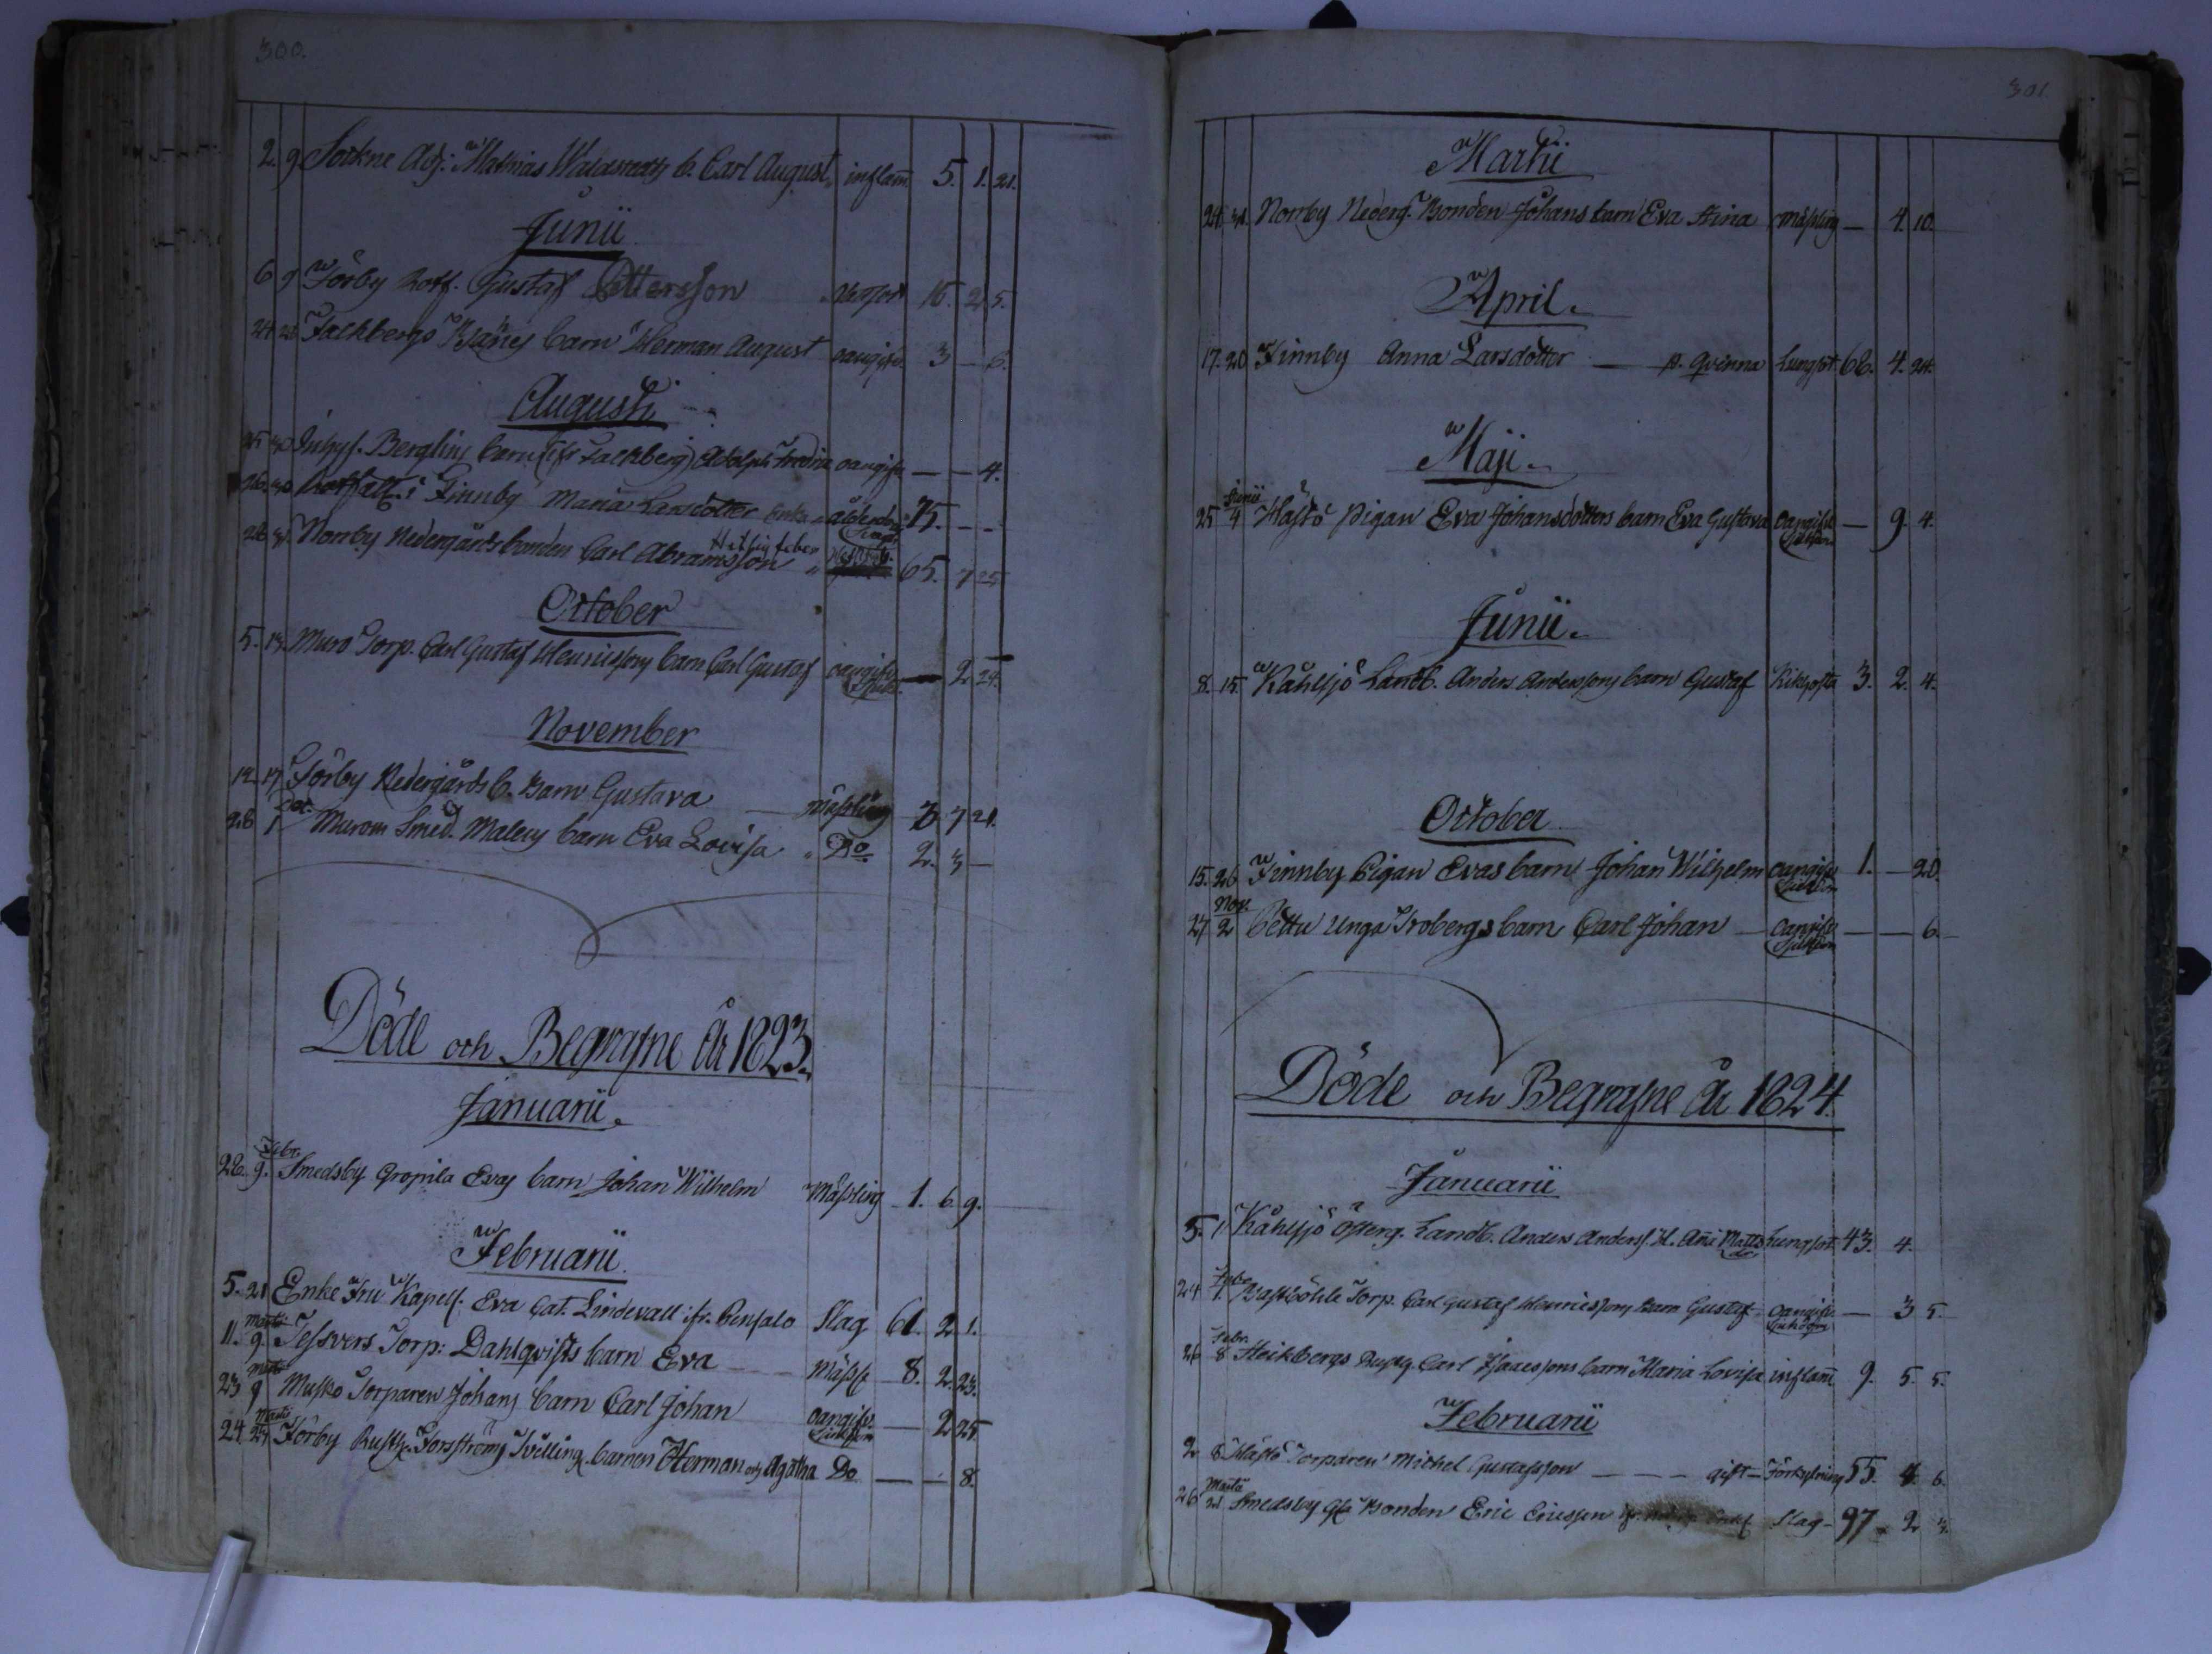 300.
2. 9 Sockne Adj: Mathias Waldstedts b. Carl August inflam̄. 5. 1. 21.
Junii
6 9 Förby Gustaf Ottersson 16. 2. 5.
24 28 Falkbergs barn Herman August oangifv. 3 – 6.
Augusti
25 30 Inhys. Berglins barn (ifr Falkberg) Adolph Fredric oangifv. – – 4.
26. 30 i Finnby Maria Larsdotter Enka ålderdoms 75. – –
Svagh.
Hitsig feber
28 31. Norrby Nedergårds bonden Carl Abramsson 65. 7 25
October
5. 13. Muro Torp. Carl Gustaf Henricssons barn Carl Gustaf oangifv. – 2 24.
Sjuk.
November
12. 17 Förby Nedergårds b. barn Gustava – Mässling 3 7 21.
Dec.
28 1 Murom Smed. Malens barn Eva Lovisa Do 2. 3 –
Döde och Begrafne År 1823.
Januarii.
Febr.
28. 9. Smedsby Evas barn Johan Wilhelm Mässling 1. 6. 9.
Februarii.
5. 21 Enke Fru Kapell. Eva Cat. Lindevall ifr. Pensalo Slag 61. 2. 1.
Martii
11. 9. Tessvers Torp: Dahlqvists barn Eva – Mässl 8. 2. 23.
Martii
23 9 Musko Torparen Johans barn Carl Johan oangifv. – 2 25
Sjukdom
Martii
24 27 Förby Rusth. Forsströms Tvilling barnen Herman och Agatha Do – – 8.
301.
Martii
24. 31. Norrby Nederg. Bonden Johans barn Eva Stina Mässling – 4. 10.
April.
17. 20 Finnby Anna Larsdotter – qvinna Lungsot 68. 4. 24.
Maji.
Junii
25 4 Hästö Pigan Eva Johansdotters barn Eva Gustava Oangifve – 9. 4.
Sjukdom
Junii.
8. 15. Kåhlsjö Landb. Anders Anderssons barn Gustaf Kikhosta 3. 2. 4.
October
15. 26 Finnby Pigan Evas barn Johan Wilhelm Oangifve 1. – 20.
Sjukdom
Nov.
27 2 Pettu Unga Frobergs barn Carl Johan – Oangifve – – 6.
Sjukdom
Döde och Begrafne År 1824.
Januarii
5. 11 Kåhlsjö Österg. Landb. Anders Anders. H. Anna Matts Lungsot 43. 4.
dr
Febr.
24 1. Bastböhle Torp. Carl Gustaf Henricssons barn Gustaf Oangifve – 3 5.
Sjukdom
Febr.
26 8 Heikbergs Rusthg. Carl Isaacssons barn Maria Lovisa inflam̄ 9. 5. 5.
Februarii
2 8. Hästö Torparen Michel Gustafsson – – – gift – Förkylning 55. 4. 6.
Martii
26 21. Smedsby Gla Bonden Eric Ericsson Slag – 97 2